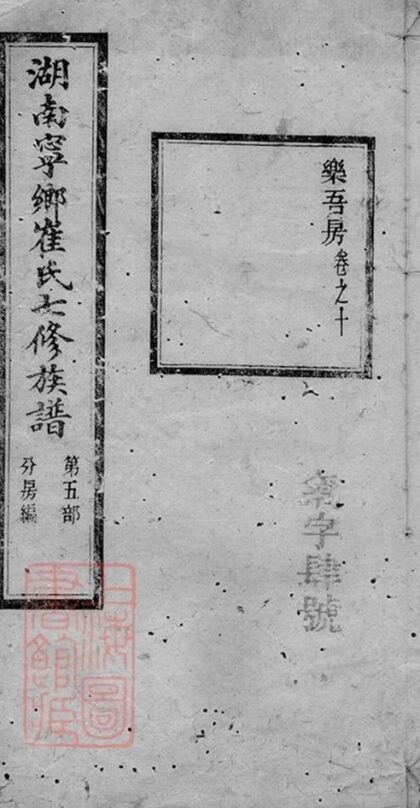 樂吾房卷之十
字肆號
湖南寧鄉崔氏七修族譜
第五部
分房編
上海圖書館藏